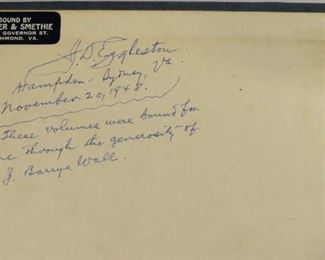 BOUND BY
ER & SMETHIE
GOVERNOR ST.
HMOND, VA.
J. D. Eggleston.
Hampden-Sydney, Va.
November 20, 1948.
These volumes were bound for
me through the generosity of
J. Barrye Wall.